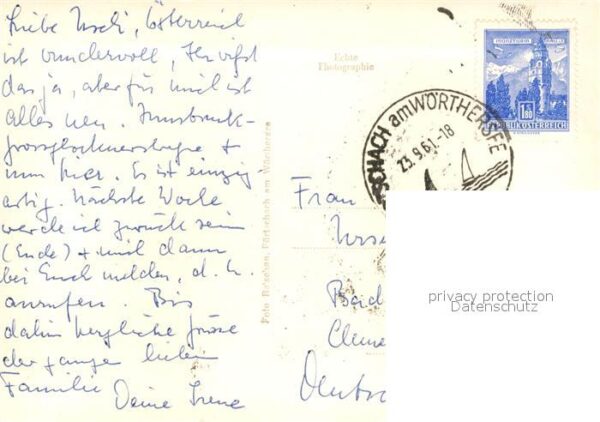 Liebe Uschi, Österreich
ist wundervoll, Ihr wißt
das ja, aber für mich ist
alles neu. Innsbruck-
grossglocknerstraße +
nun hier. Es ist einzig
artig. Nächste Woche
werde ich zurück sein
(Ende) + mich dann
bei Euch melden, d. h.
anrufen. Bis
dahin herzliche Grüsse
der ganzen lieben
Familie Deine Irene
Echte
Photographie
PÖRTSCHACH am WÖRTHERSEE
23.9.61-18
1.80
REPUBLIK ÖSTERREICH
Pörtschach am Wörthersee
Frau
Bad
Cleme
Deutsc
privacy protection
Datenschutz